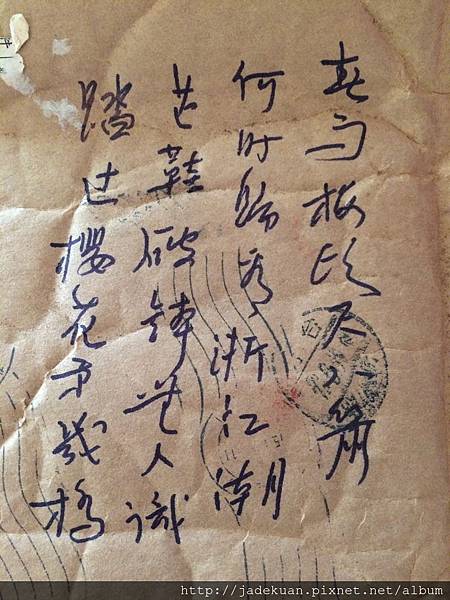 春雨楼头尺八箫
何时歸看浙江潮
芒鞋破鉢無人識
踏过櫻花第幾橋
http://jadekuan.pixnet.net/album